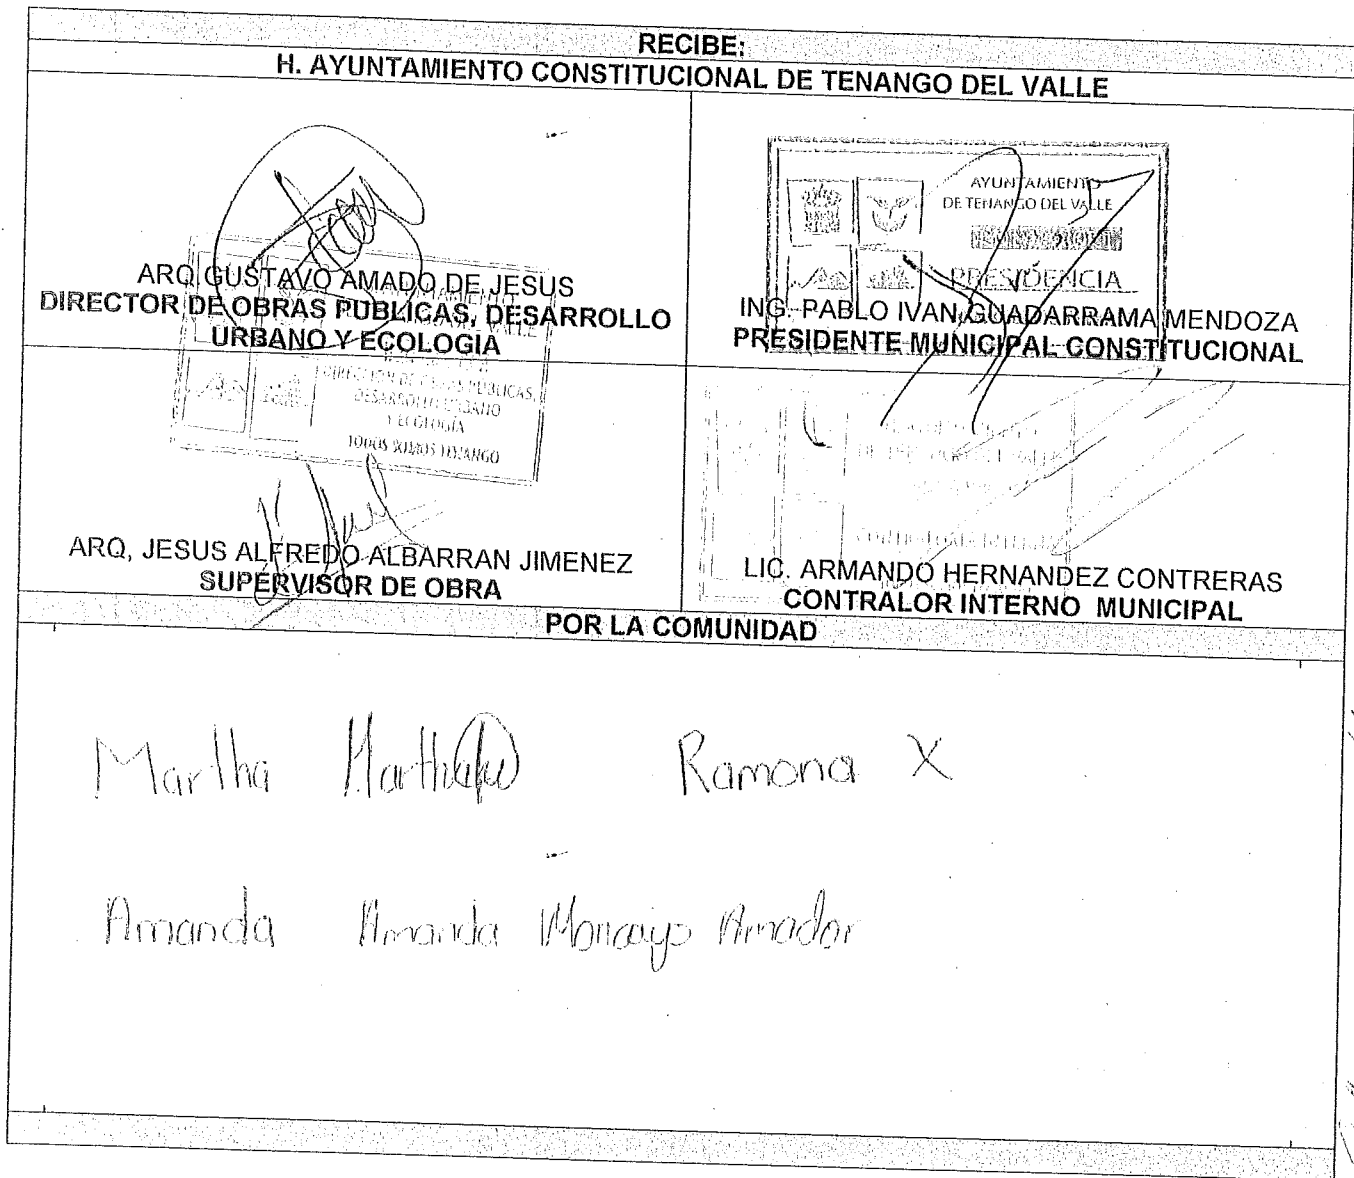 RECIBE:
H. AYUNTAMIENTO CONSTITUCIONAL DE TENANGO DEL VALLE
ARQ GUSTAVO AMADO DE JESUS
DIRECTOR DE OBRAS PUBLICAS, DESARROLLO
URBANO Y ECOLOGIA
DIRECCIÓN DE OBRAS PUBLICAS,
DESARROLLO URBANO
Y ECOLOGÍA
TODOS SOMOS TENANGO
AYUNTAMIENTO
DE TENANGO DEL VALLE
PRESIDENCIA
ING. PABLO IVAN GUADARRAMA MENDOZA
PRESIDENTE MUNICIPAL CONSTITUCIONAL
ARQ, JESUS ALFREDO ALBARRAN JIMENEZ
SUPERVISOR DE OBRA
LIC. ARMANDO HERNANDEZ CONTRERAS
CONTRALOR INTERNO MUNICIPAL
POR LA COMUNIDAD
Martha Martha Ramona X
Amanda Amanda Moncayo Amador